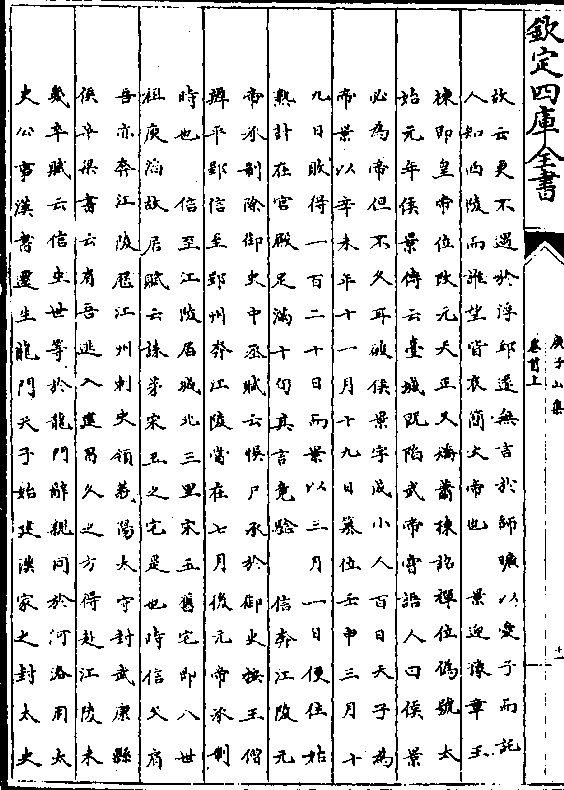 欽定四庫全書
庾子山集
卷首上
十一
故云更不遇於浮邱遂無言於師曠以愛子而託
人知西陵而誰望皆哀簡文帝也 景迎豫章王
棟即皇帝位改元天正又矯蕭棟詔禪位偽號太
始元年侯景傳云臺城既陷武帝嘗語人曰侯景
必為帝但不久耳破侯景字成小人百日天子為
帝景以辛未年十一月十九日簒位壬申三月十
九日敗得一百二十日而景以三月一日便往姑
熟計在宮殿足滿十旬其言竟騐 信奔江陵元
帝承制除御史中丞賦云悞尸承於御史按王僧
辯平郢信至郢州奔江陵當在七月後元帝承制
時也 信至江陵居城北三里宋玉舊宅即八世
祖庾滔故居賦云誅茅宋玉之宅是也時信父肩
吾亦奔江陵歴江州刺史領義陽太守封武康縣
侯卒梁書云肩吾逃入建昌久之方得赴江陵未
幾卒賦云信生世等於龍門辭親同於河洛用太
史公事漢書遷生龍門天子始建漢家之封太史